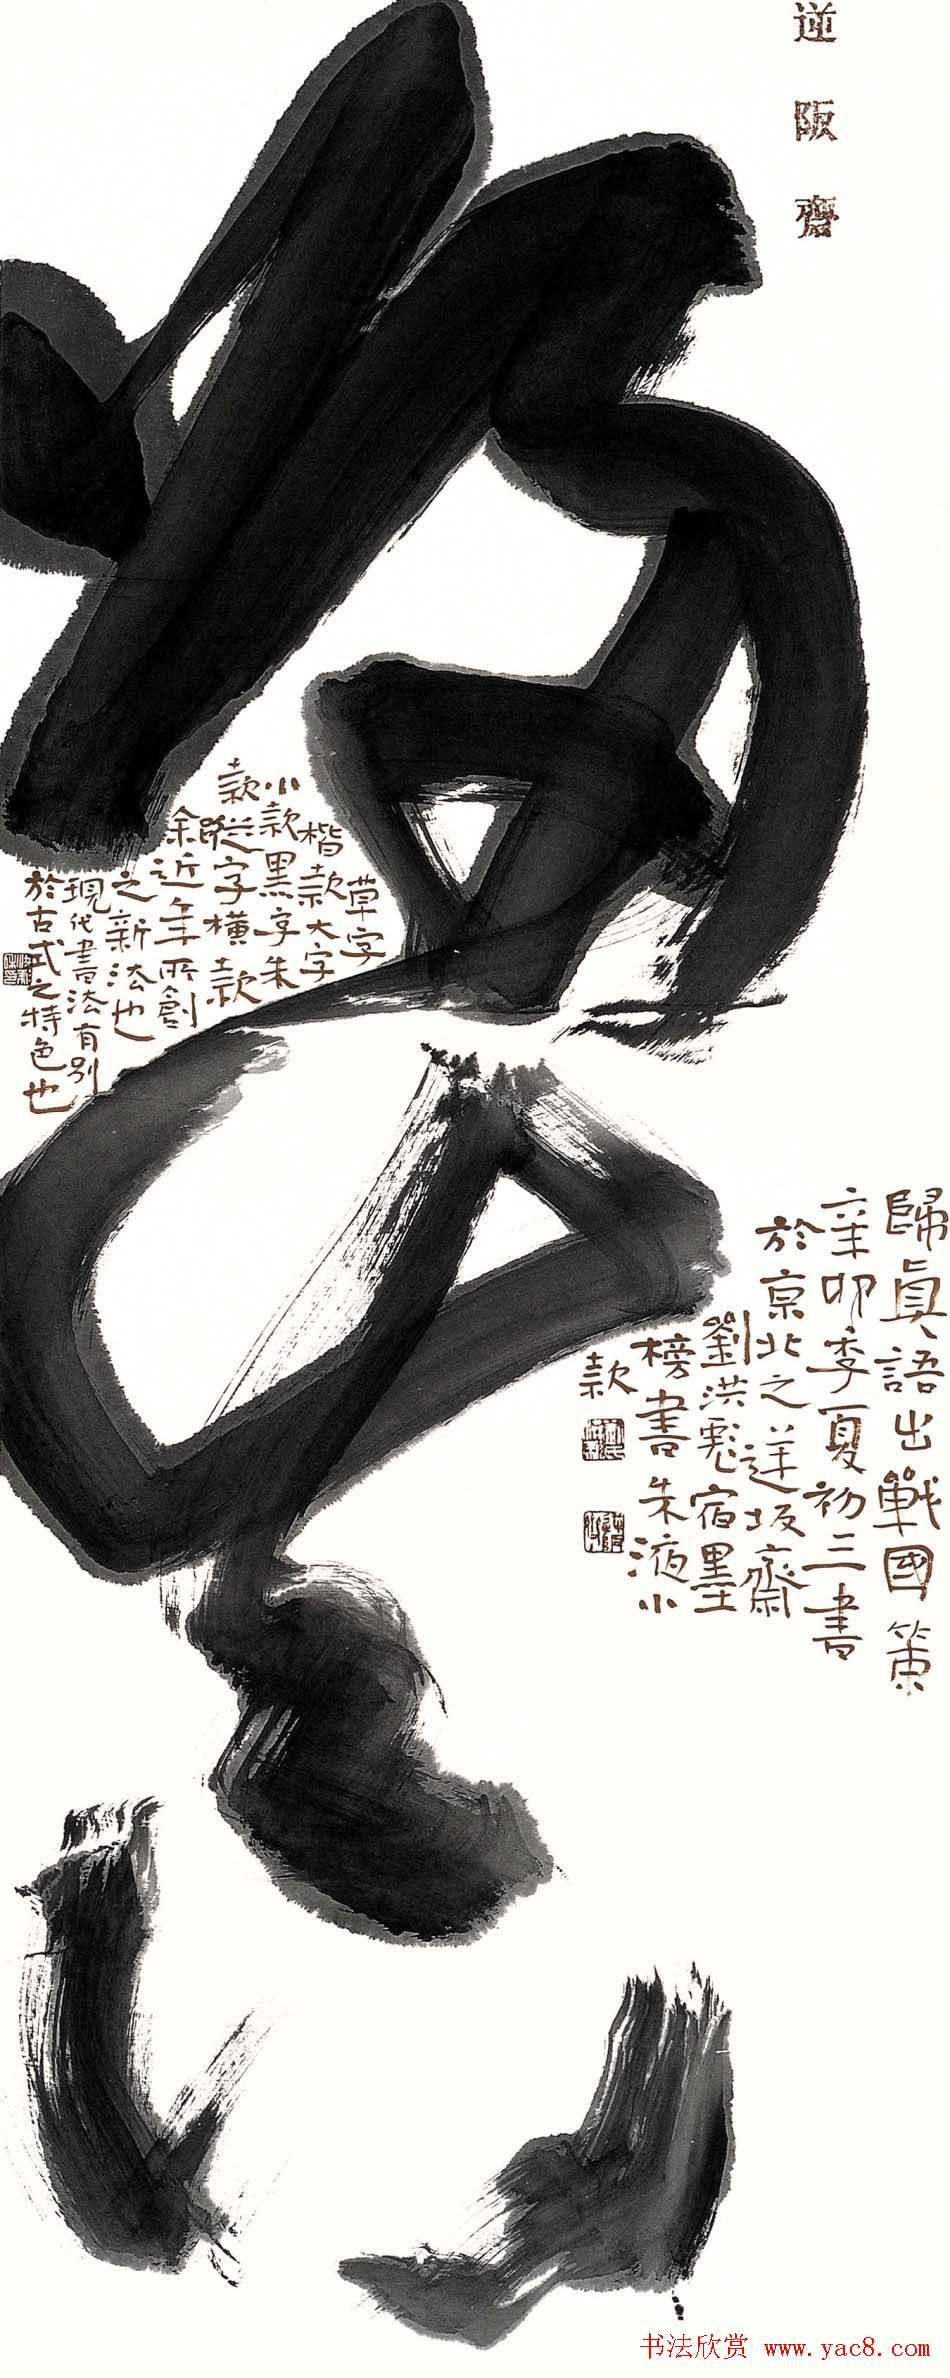 逆阪齋
歸真
歸真語出戰國策
辛卯季夏初三書
於京北之逆坂齋
劉洪彪宿墨
榜書朱液小
款
草字
楷款大字
小款黑字朱
款縱字橫款
余近年所創
之新法也
現代書法有別
於古式之特色也
书法欣赏 www.yac8.com